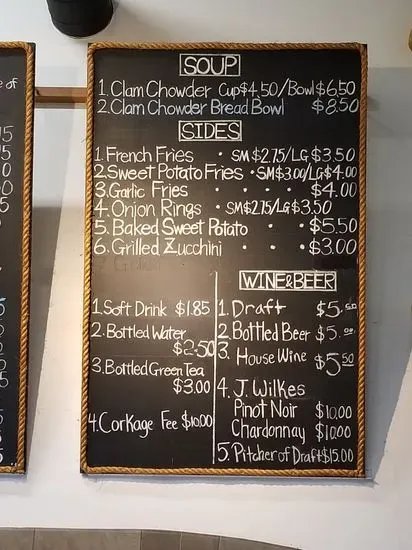 SOUP
1. Clam Chowder Cup $4.50/Bowl $6.50
2. Clam Chowder Bread Bowl $8.50
SIDES
1. French Fries · SM $2.75/LG $3.50
2. Sweet Potato Fries · SM $3.00/LG $4.00
3. Garlic Fries · · · · $4.00
4. Onion Rings · SM $2.75/LG $3.50
5. Baked Sweet Potato · · $5.50
6. Grilled Zucchini · · · $3.00
1. Soft Drink $1.85
2. Bottled Water
$2.50
3. Bottled Green Tea
$3.00
4. Corkage Fee $10.00
WINE & BEER
1. Draft $5.50
2. Bottled Beer $5.00
3. House Wine $5.50
4. J. Wilkes
Pinot Noir $10.00
Chardonnay $10.00
5. Pitcher of Draft $15.00